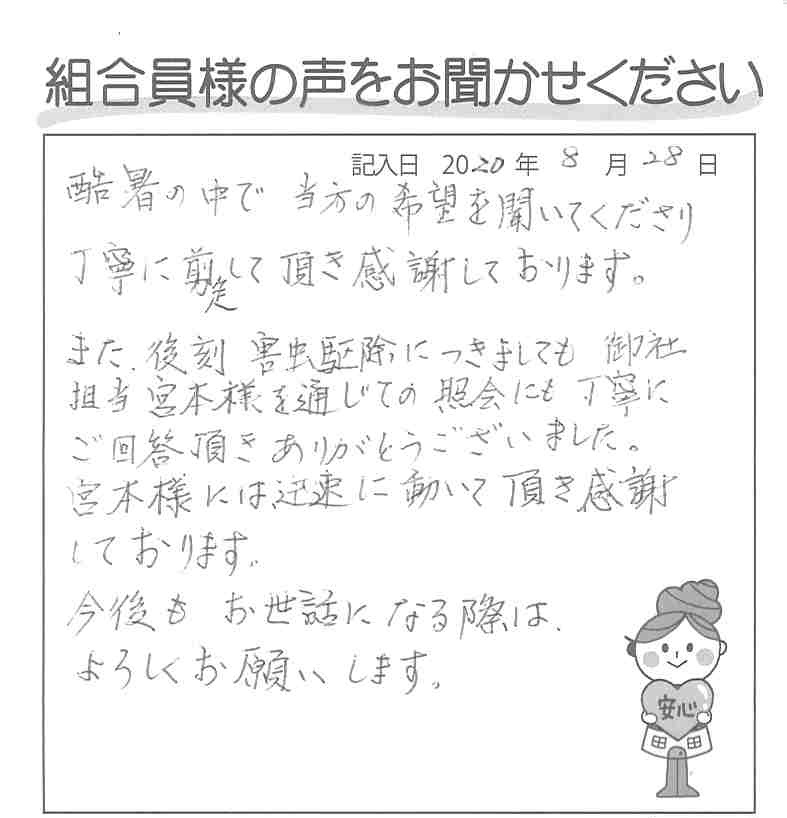 組合員様の声をお聞かせください
記入日 2020年 8月28日
酷暑の中で 当方の希望を聞いてくださり
丁寧に剪定して頂き感謝しております。
また、後刻 害虫駆除につきましても 御社
担当宮本様を通じての照会にも丁寧に
ご回答頂きありがとうございました。
宮本様には迅速に動いて頂き感謝
しております。
今後も お世話になる際は、
よろしくお願いします。
安心